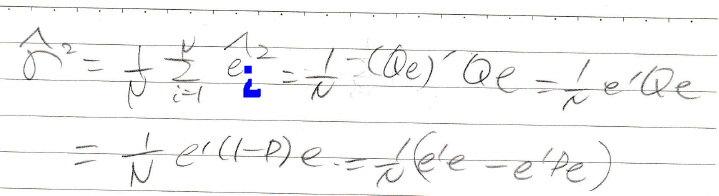 σ̂² = 1/N Σ_{i=1}^{N} ê_i² = 1/N (Qe)′Qe = 1/N e′Qe
= 1/N e′(1-P)e = 1/N (e′e - e′Pe)